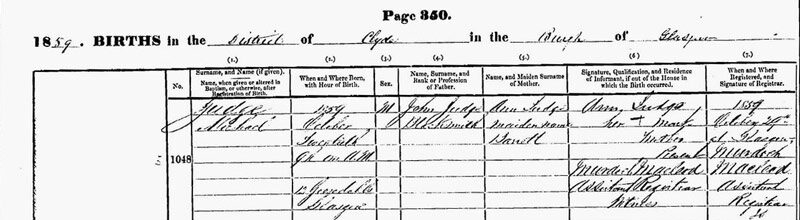 Page 350.
1859. BIRTHS in the District of Clyde in the Burgh of Glasgow
(1.) (2.) (3.) (4.) (5.) (6.) (7.)
No. Surname, and Name (if given). Name, when given or altered in Baptism, or otherwise, after Registration of Birth. When and Where Born, with Hour of Birth. Sex. Name, Surname, and Rank or Profession of Father. Name, and Maiden Surname of Mother. Signature, Qualification, and Residence of Informant, if out of the House in which the Birth occurred. When and Where Registered, and Signature of Registrar.
Judge 1859 M John Judge Ann Judge Ann Judge 1859
Michael October Blacksmith maiden name her + Mark October 29th
Twentieth Mother at Glasgow
1048
A.M. Present Murdoch
Murdoch Macleod Macleod
Assistant Registrar Assistant
Glasgow Witness Registrar